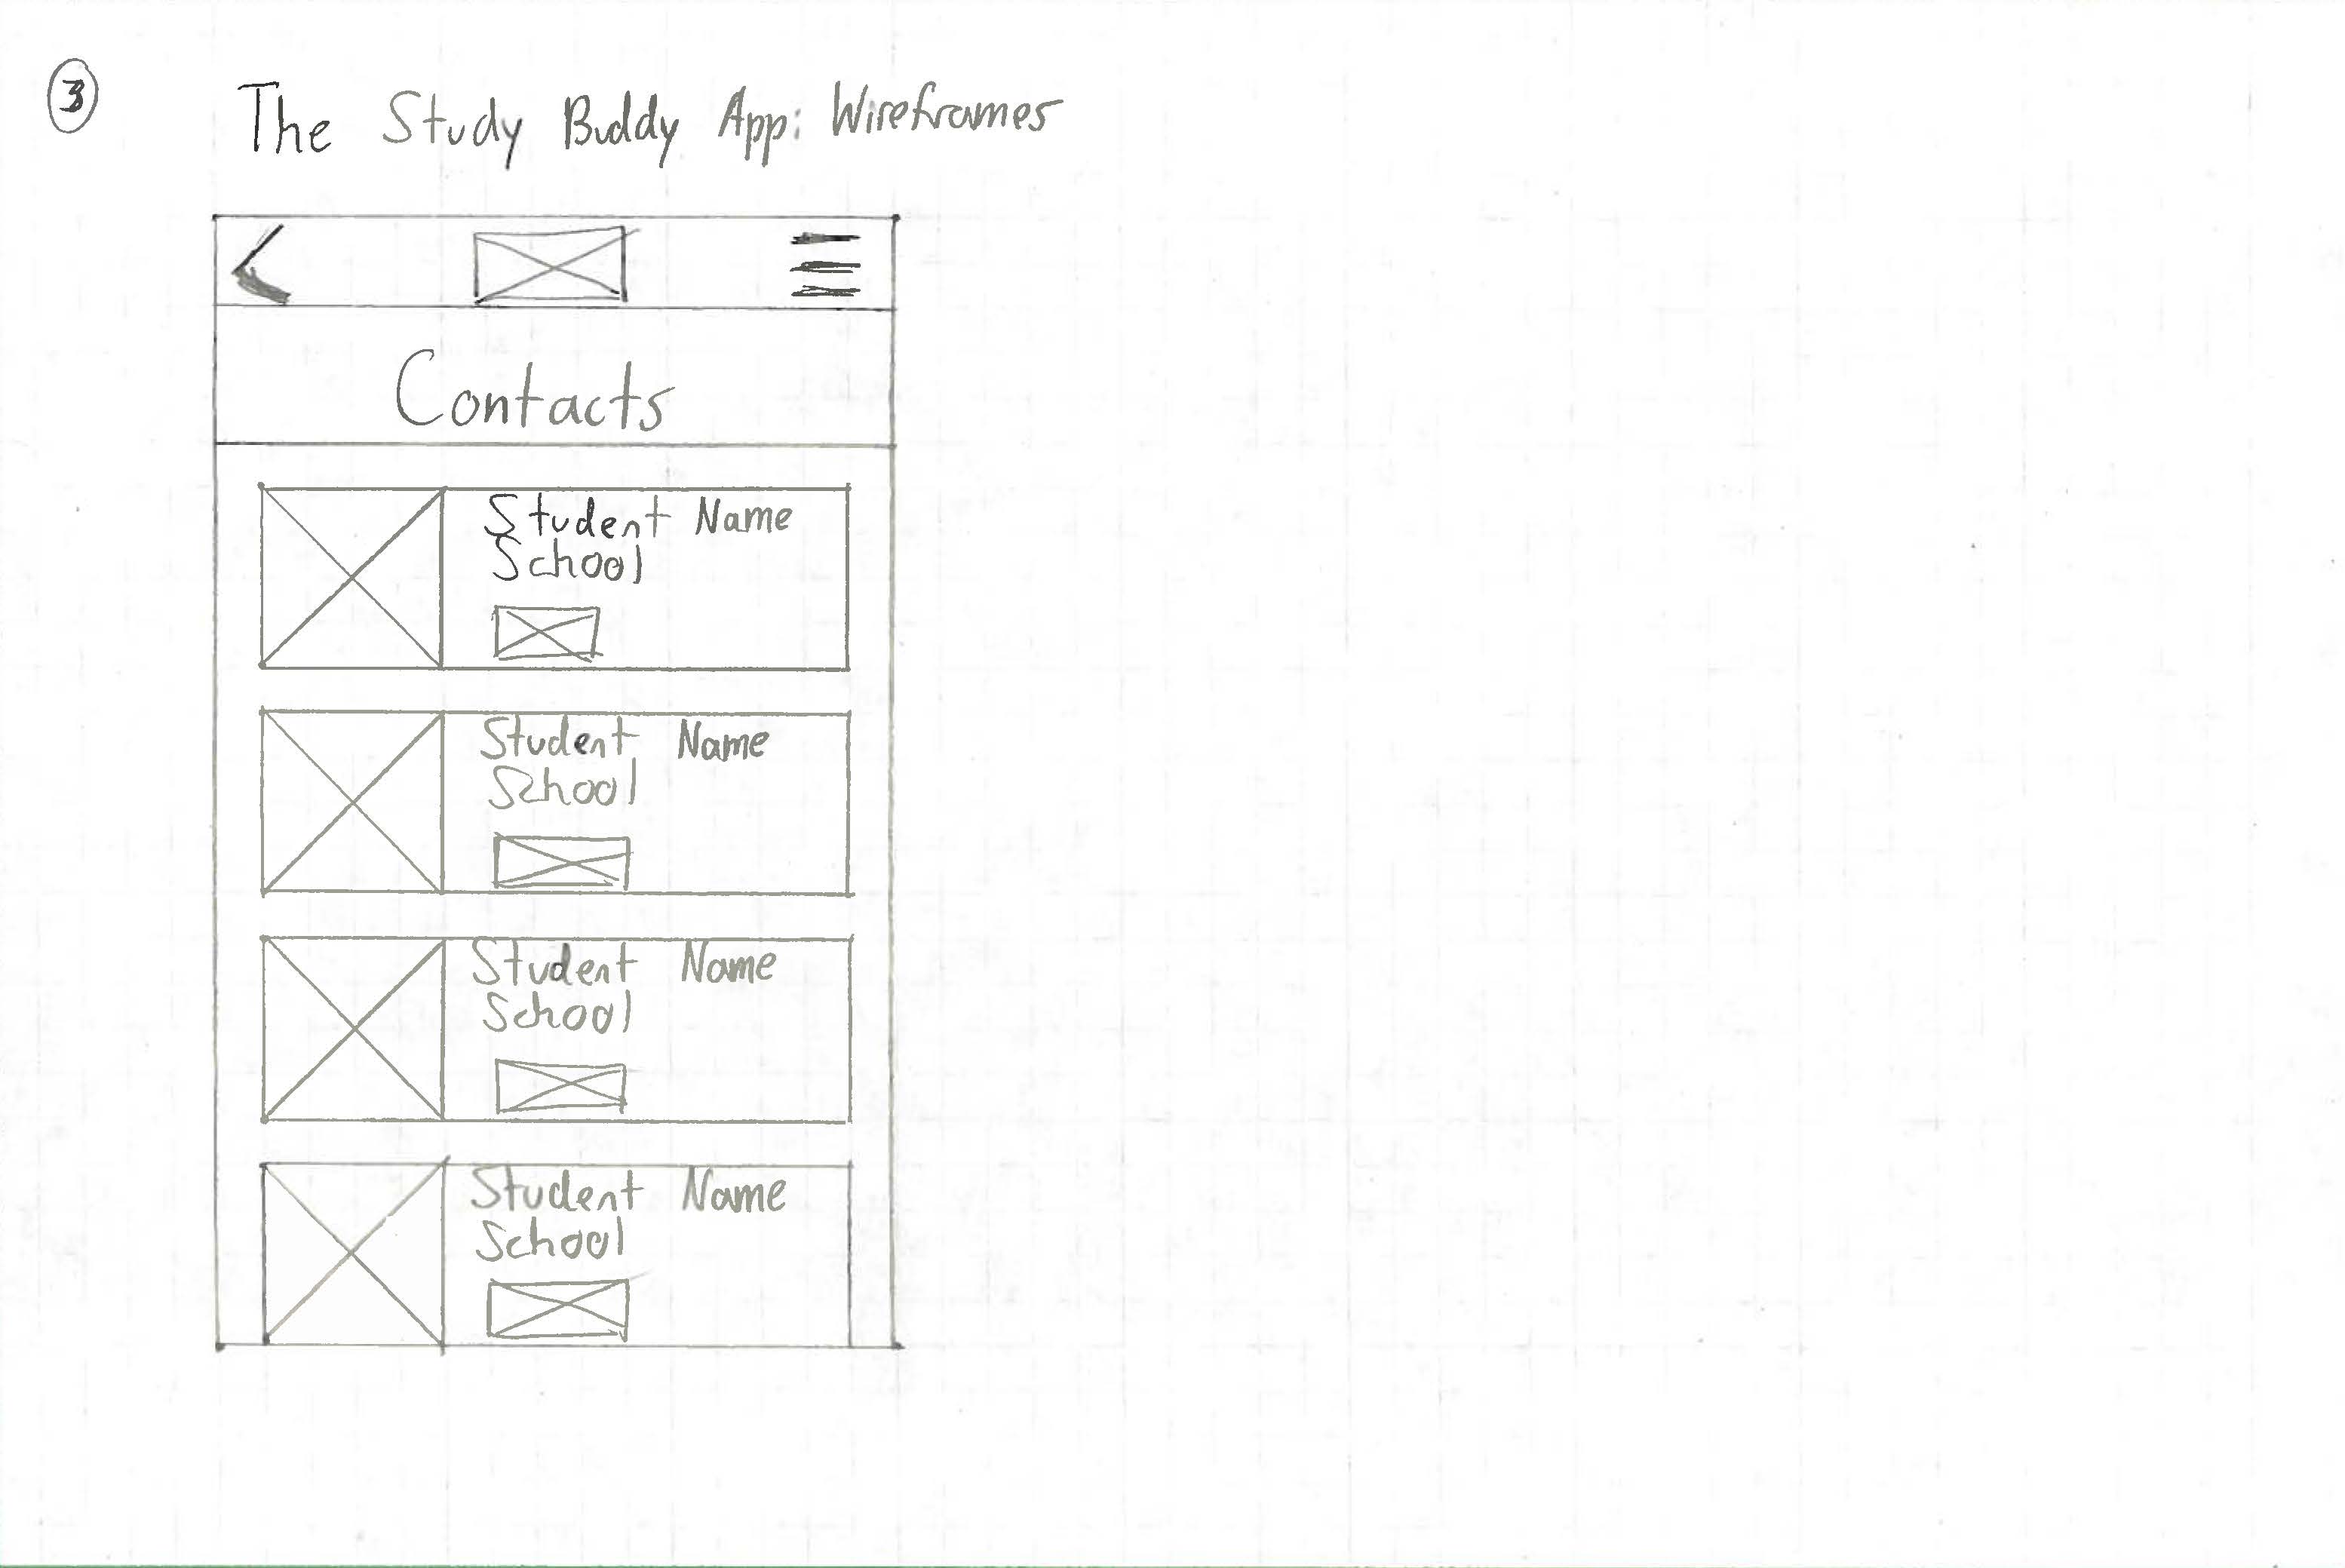 3
The Study Buddy App: Wireframes
Contacts
Student Name
School
Student Name
School
Student Name
School
Student Name
School